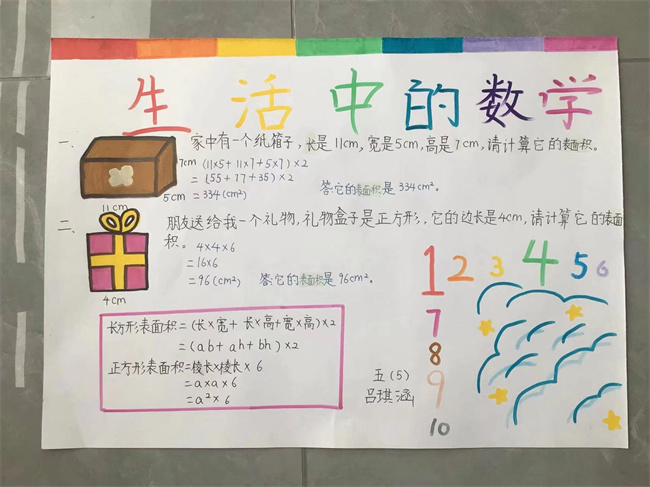 生活中的数学
一、
家中有一个纸箱子，长是11cm，宽是5cm，高是7cm，请计算它的表面积。
7cm
5cm
11cm
(11×5+11×7+5×7)×2
=(55+77+35)×2
=334(cm²)
答:它的表面积是334cm².
二、
朋友送给我一个礼物，礼物盒子是正方形，它的边长是4cm，请计算它的表面
积。
4×4×6
=16×6
=96(cm²)
答:它的表面积是96cm²。
4cm
长方形表面积=(长×宽+长×高+宽×高)×2
=(ab+ah+bh)×2
正方形表面积=棱长×棱长×6
=a×a×6
=a²×6
1 2 3 4 5 6
7
8
9
10
五(5)
吕琪涵